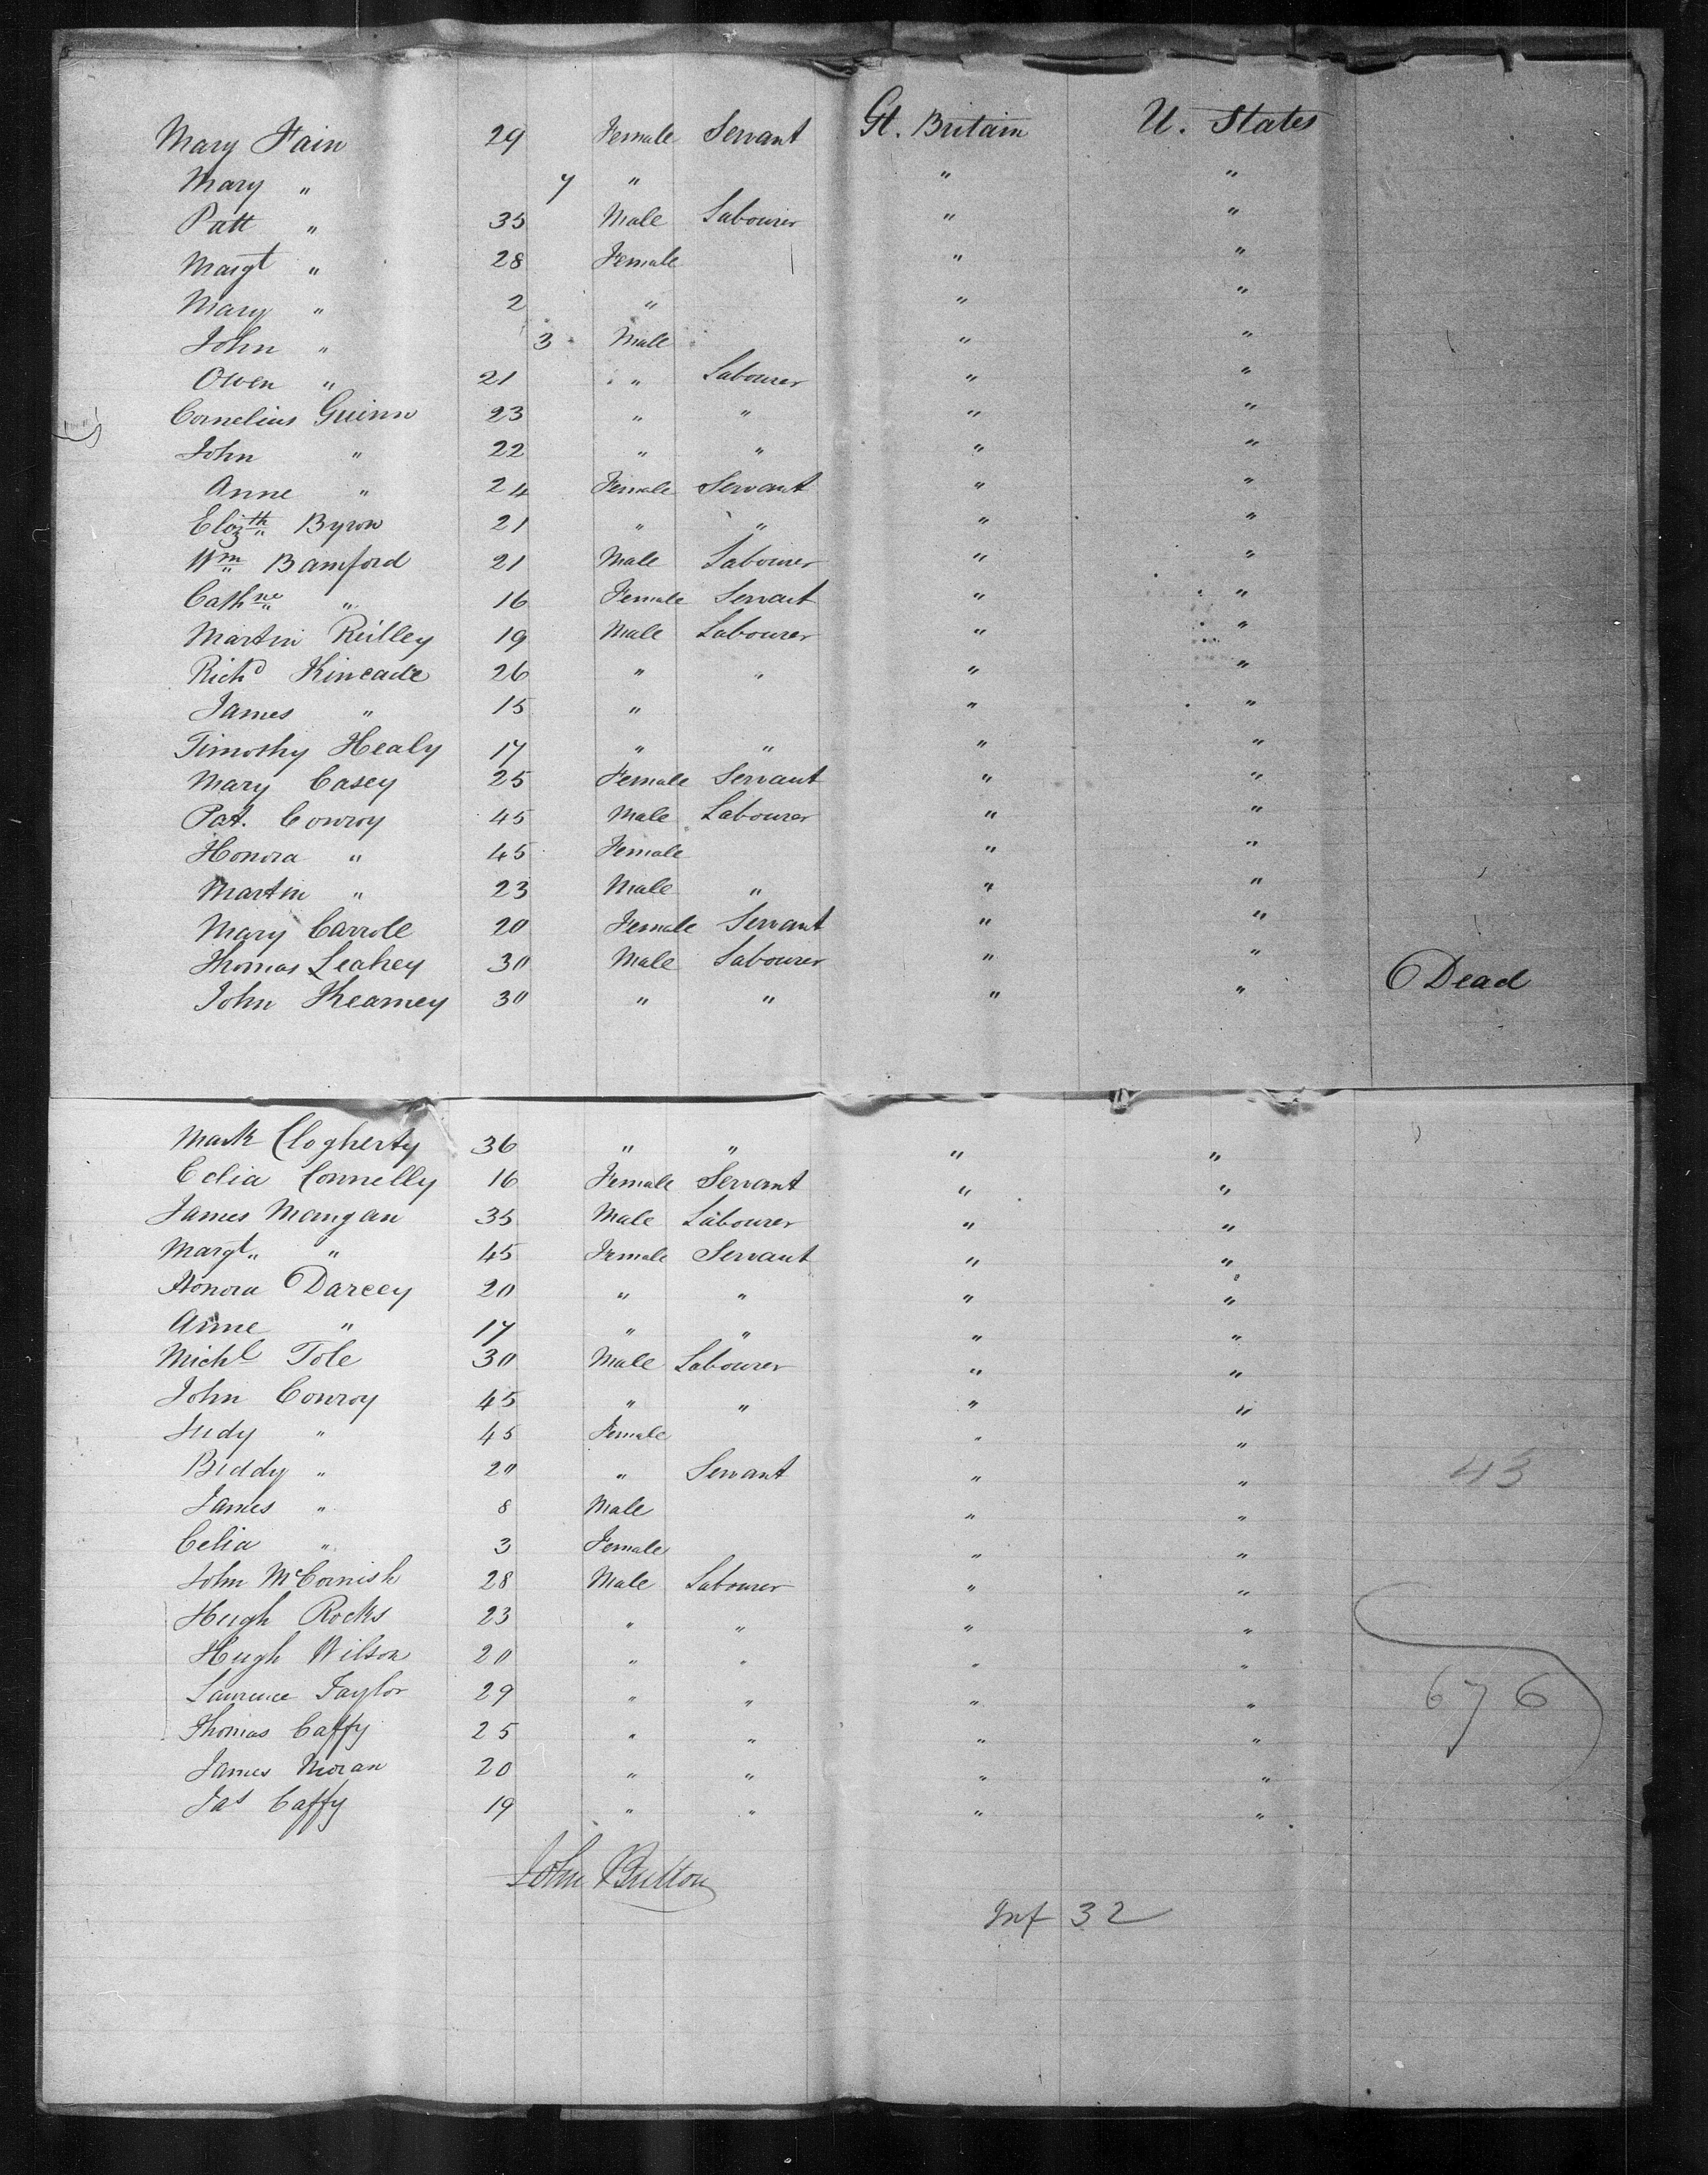 Mary Fain 29 Female Servant Gt. Britain U. States
Mary " 7 " " "
Patt " 35 Male Labourer " "
Margt " 28 Female " "
Mary " 2 " " "
John " 3 Male " "
Owen " 21 " Labourer " "
Cornelius Guinn 23 " " " "
John " 22 " " " "
Anne " 24 Female Servant " "
Elizth Byron 21 " " " "
Wm Bamford 21 Male Labourer " "
Cathne " 16 Female Servant " "
Martin Reilley 19 Male Labourer " "
Richd Kincade 26 " " " "
James " 15 " " "
Timothy Healy 17 " " " "
Mary Casey 25 Female Servant " "
Pat. Conroy 45 Male Labourer " "
Honora " 45 Female " "
Martin " 23 Male " " "
Mary Carroll 20 Female Servant " "
Thomas Leahey 30 Male Labourer " "
John Kearney 30 " " " " Dead
Mark Clogherty 36 " " " "
Celia Connelly 16 Female Servant " "
James Mangan 35 Male Labourer " "
Margt " 45 Female Servant " "
Honora Darcey 20 " " " "
Anne " 17 " " " "
Michl Tole 30 Male Labourer " "
John Conroy 45 " " " "
Judy " 45 Female " "
Biddy " 20 " Servant " " 43
James " 8 Male " "
Celia " 3 Female " "
John McCornish 28 Male Labourer " "
Hugh Rocks 23 " " " "
Hugh Wilson 20 " " " "
Laurence Taylor 29 " " " " 676
Thomas Caffy 25 " " " "
James Moran 20 " " " "
Jas Caffy 19 " " " "
John Britton
Inf 32